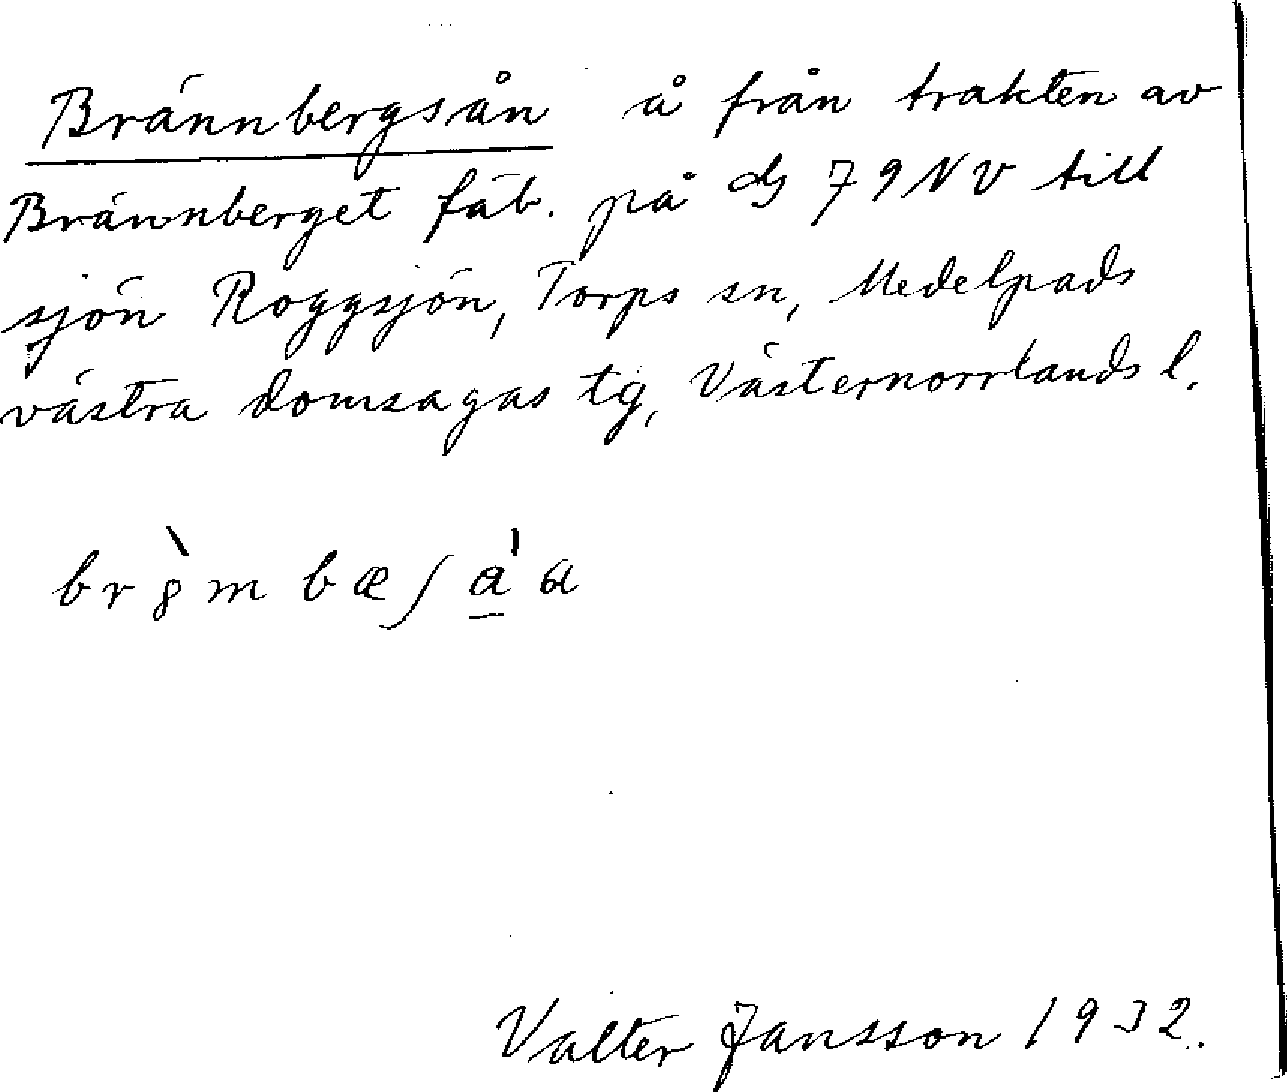 Brännbergsån å från trakten av
Brännberget fäb. på 79 NV till
sjön Roggsjön, Torps sn, Medelpads
västra domsagas tg, Västernorrlands l.
Valter Jansson 1932.